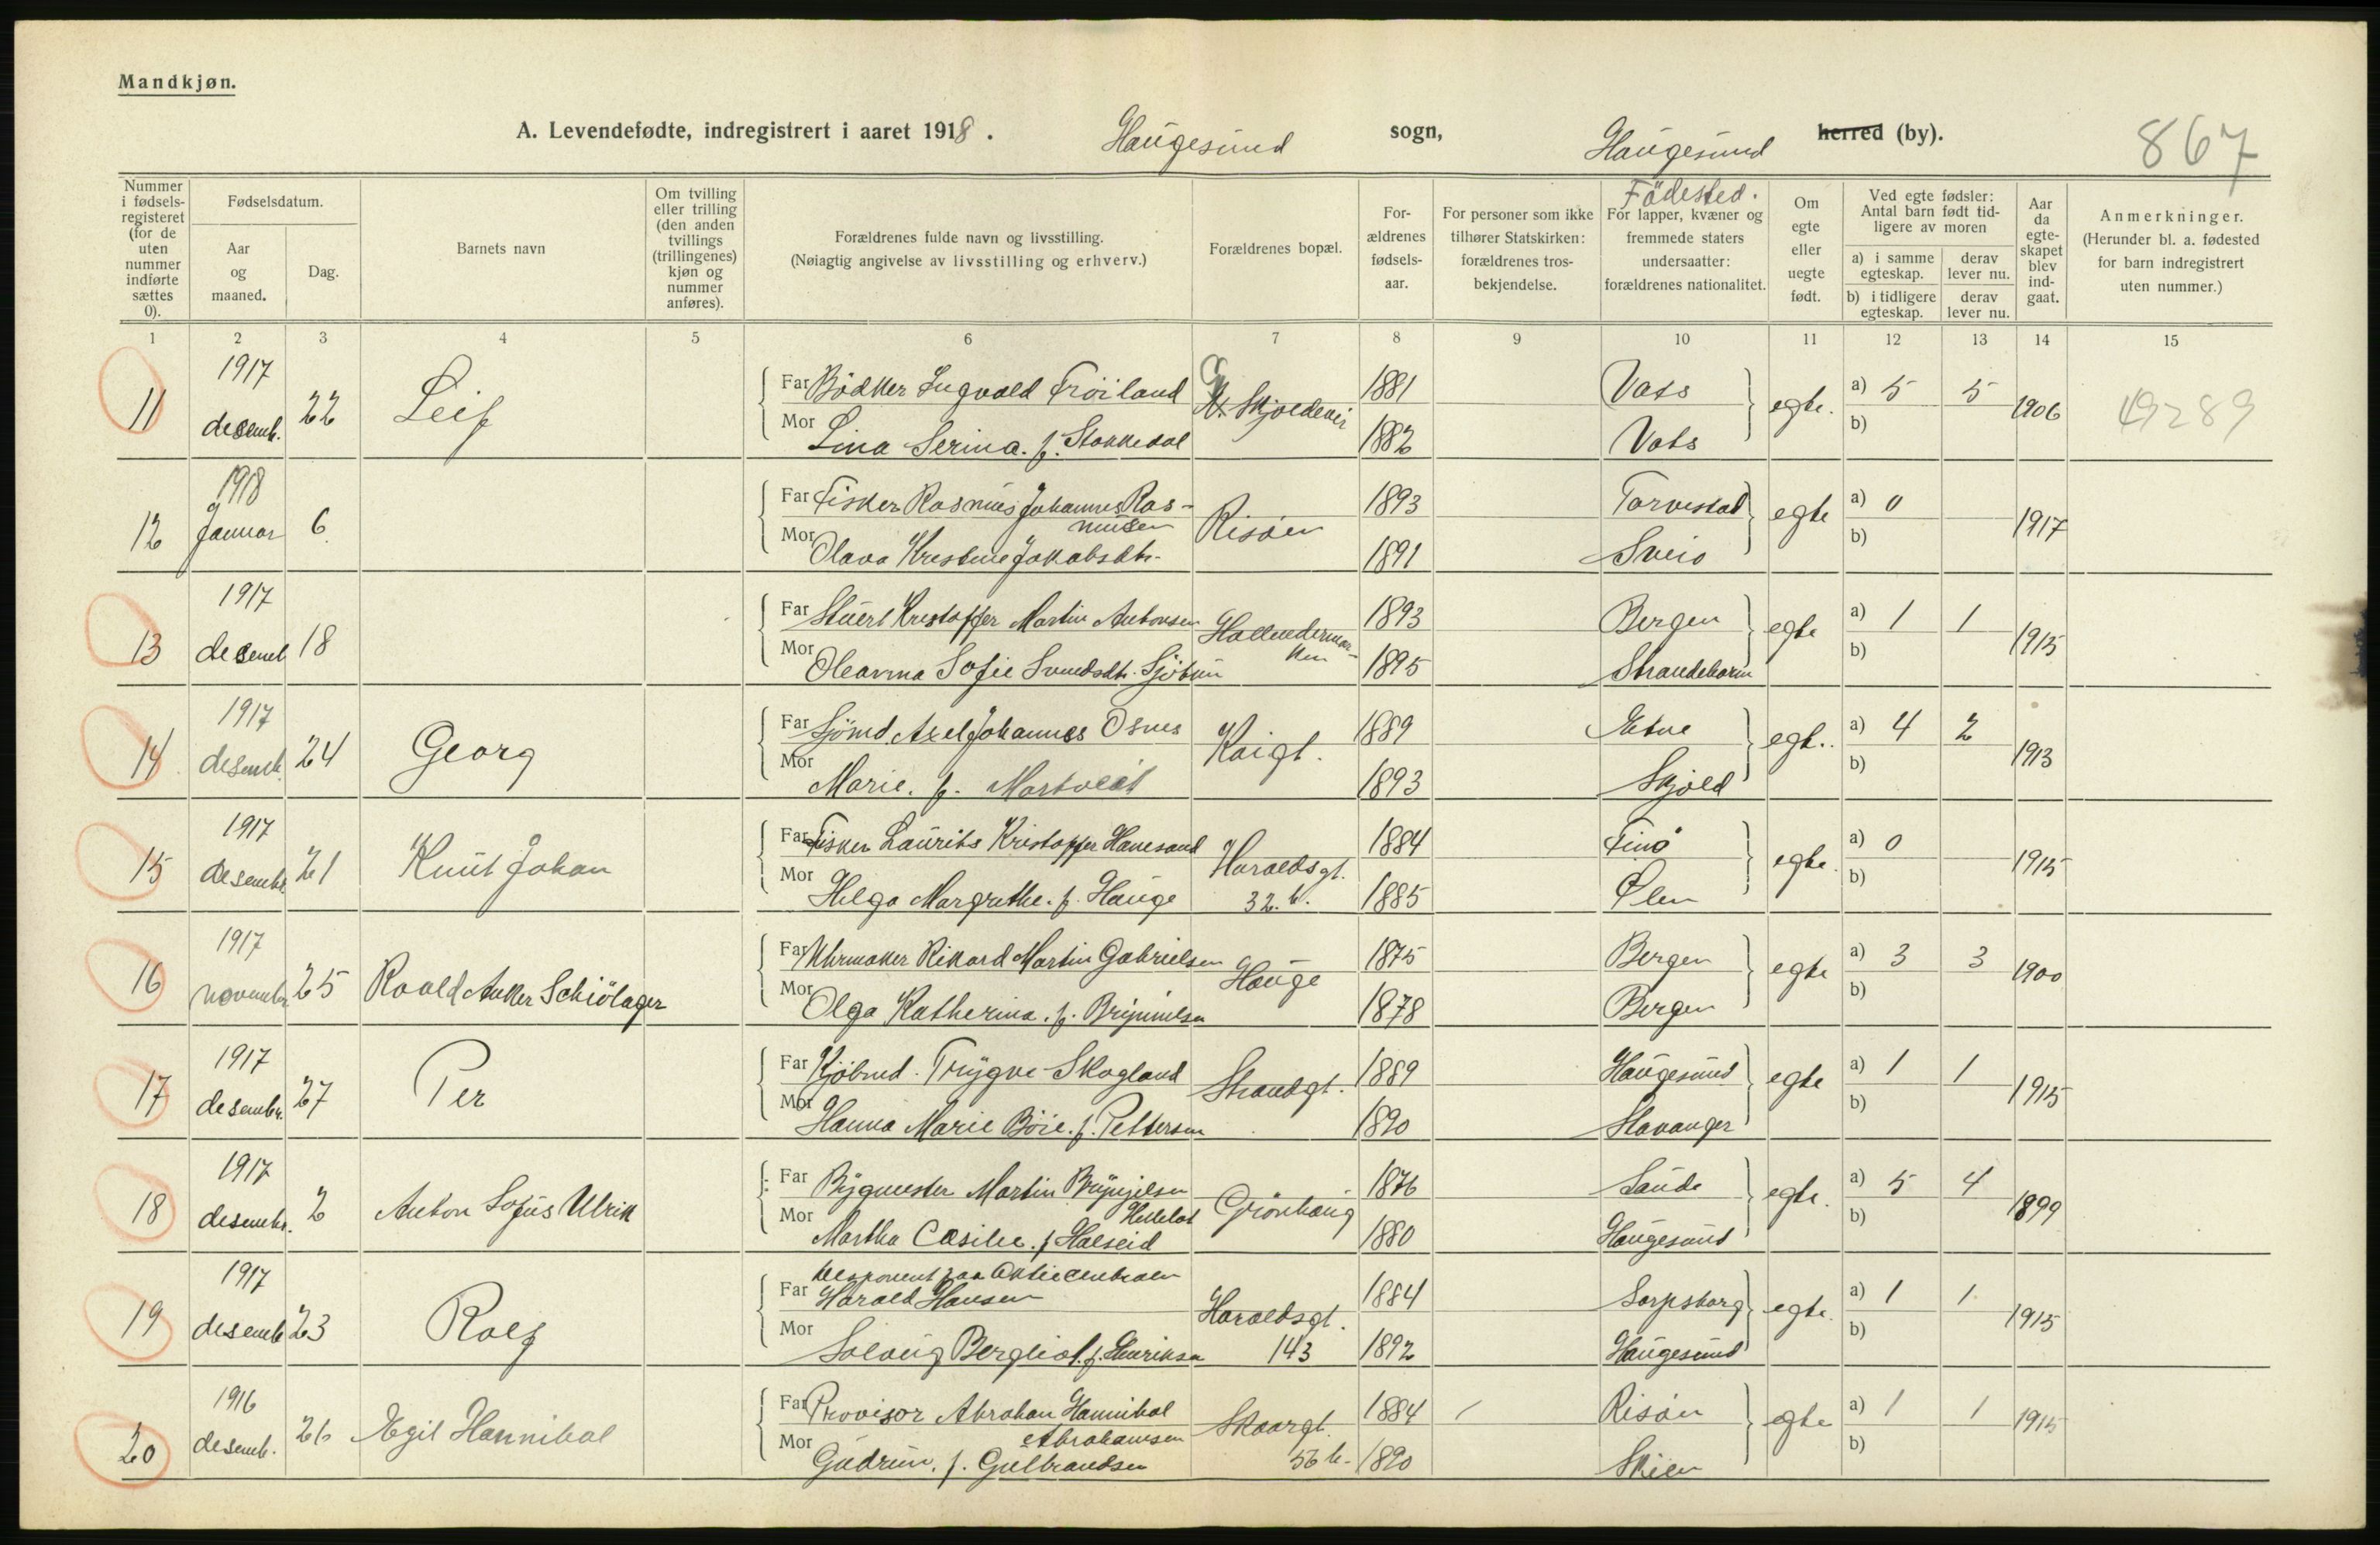 Mandkjøn.
A. Levendefødte, indregistrert i aaret 1918. Haugesund sogn, Haugesund herred (by). 867
Nummer i fødsels-registeret (for de uten nummer indførte sættes 0).
Fødselsdatum.
Aar og maaned.
Dag.
Barnets navn
Om tvilling eller trilling (den anden tvillings (trillingenes) kjøn og nummer anføres).
Forældrenes fulde navn og livsstilling.
(Nøiagtig angivelse av livsstilling og erhverv.)
Forældrenes bopæl.
For-ældrenes fødsels-aar.
For personer som ikke tilhører Statskirken: forældrenes tros-bekjendelse.
Födested.
For lapper, kvæner og fremmede staters undersaatter: forældrenes nationalitet.
Om egte eller uegte født.
Ved egte fødsler: Antal barn født tid-ligere av moren
a) i samme egteskap. derav lever nu.
b) i tidligere egteskap. derav lever nu.
Aar da egte-skapet blev ind-gaat.
Anmerkninger.
(Herunder bl. a. fødested for barn indregistrert uten nummer.)
1 2 3 4 5 6 7 8 9 10 11 12 13 14 15
11 1917 desemb. 22 Leif
Far Bödker Ingvald Fröiland 1881 Vats egte. a) 5 5 1906 49289
Mor Lina Serina. f. Stokkedal 1882 Vats b)
12 1918 Januar 6.
Far Fisker Rasmus Johannes Ras-
musen Risöen 1893 Torvestad egte a) 0 1917
Mor Olava Kristine Jakobsdtr. 1891 Sveio b)
13 1917 desemb 18
Far Stuert Kristoffer Martin Antonsen 1893 Bergen egte a) 1 1 1915
Mor Oleanna Sofie Svendsdtr. 1895 Strandebarm b)
14 1917 desemb. 24 Georg
Far Sjömd. Axel Johannes Osnes Kaigt. 1889 Etne egte. a) 4 2 1913
Mor Marie. f. 1893 Skjold b)
15 1917 desembr. 21 Knut Johan
Far Fisker Laurits Kristoffer Haresand Haraldsgt. 1884 Finö egte. a) 0 1915
Mor Helga Margrethe. f. Hauge 32. b. 1885 Ølen b)
16 1917 november 25 Roald Anker Schiötager
Far Uhrmaker Rikard Martin Gabrielsen Hauge 1875 Bergen egte a) 3 3 1900
Mor Olga Katherina. f. Brynnilsen 1878 Bergen b)
17 1917 desembr. 27 Per
Far Kjöbmd. Trygve Skogland Strandgt. 1889 Haugesund egte a) 1 1 1915
Mor Hanna Marie Böie. f. Pettersen 1890 Stavanger b)
18 1917 desembr. 2 Anton Sofus Ulrik
Far Bygmester Martin Brynjelsen Grönhaug 1876 Saude egte. a) 5 4 1899
Mor Martha Casilie. f Halseid 1880 Haugesund b)
19 1917 desemb 23 Rolf
Far Harald Hansen Haraldsgt. 1884 Sarpsborg egte. a) 1 1 1915
Mor Solveig Bergliot. f. Henriksen 143 1892 Haugesund b)
20 1916 desemb. 26 Egil Hannibal
Far Provisor Abraham Hannibal
Abrahamsen Skaargt. 1884 Risöen egte a) 1 1 1915
Mor Gudrun. f. Gulbrandsen 56 b. 1890 Skien b)